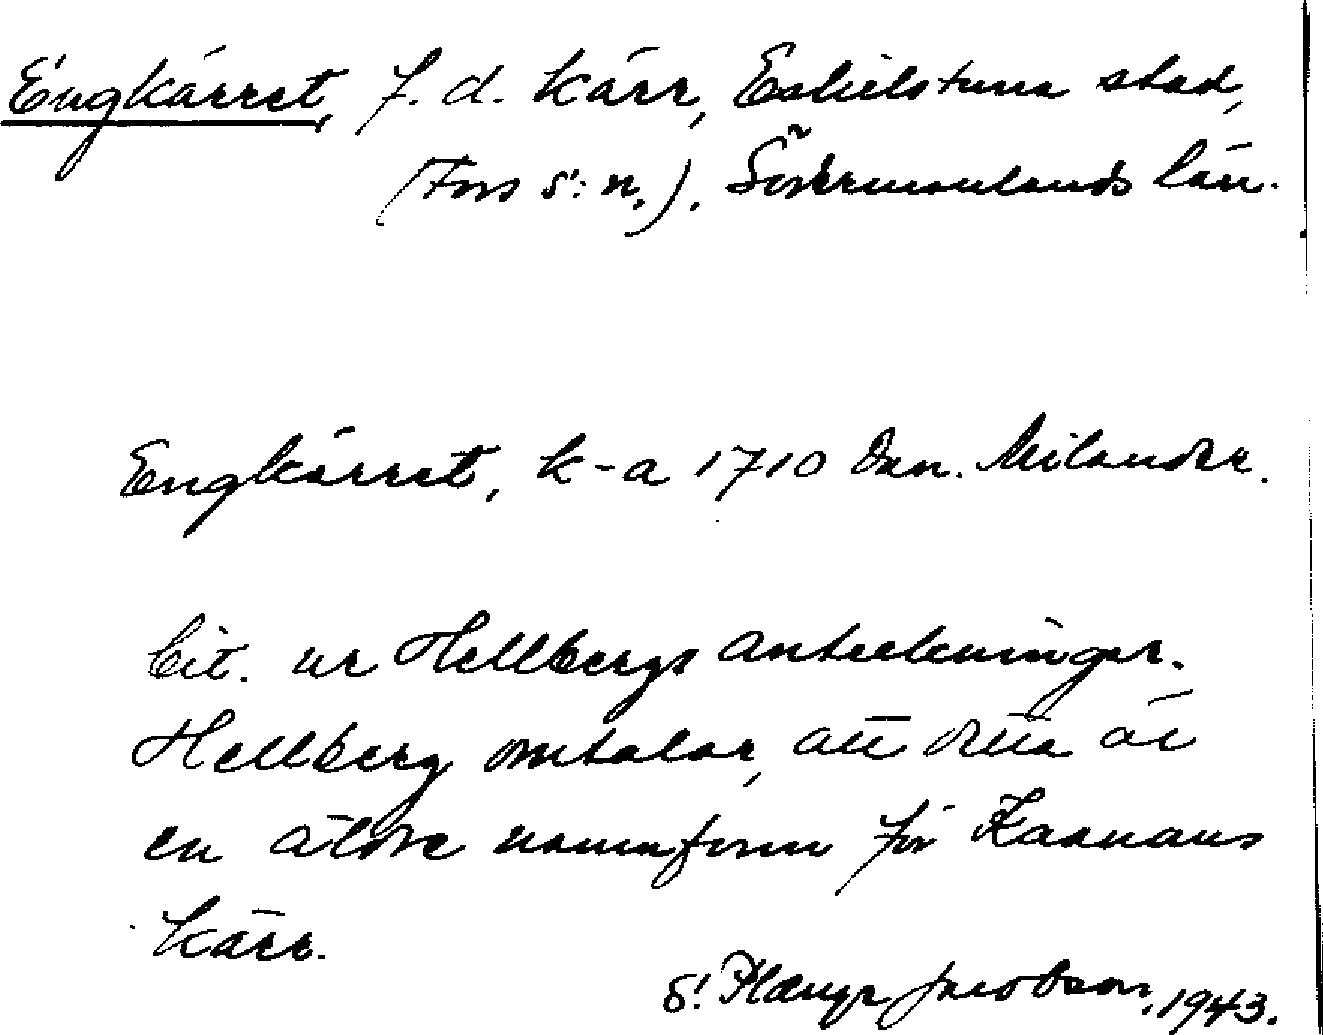 Engkärret, f.d. kärr, Eskilstuna stad,
(Fors s:n.), Södermanlands län.
Engkärret, k-a 1710 Dan. Milander.
Cit. ur Hellbergs anteckningar.
Hellberg omtalar, att detta är
en äldre namnform för Kaanans
kärr.
Jacobson, 1943.